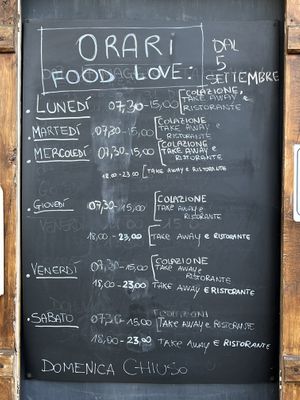 ORARI
FOOD LOVE:
DAL
5
SETTEMBRE
LUNEDÍ 07,30-15,00 [COLAZIONE, TAKE AWAY e RISTORANTE
MARTEDÍ 07,30-15,00 [COLAZIONE TAKE AWAY e RISTORANTE
MERCOLEDÍ 07,30-15,00 [COLAZIONE TAKE AWAY e RISTORANTE
18.00-23.00 [TAKE AWAY e RISTORANTE
GIOVEDÍ 07,30-15,00 [COLAZIONE TAKE AWAY e RISTORANTE
18,00-23.00 [TAKE AWAY e RISTORANTE
VENERDÍ 07,30-15,00 [COLAZIONE TAKE AWAY e RISTORANTE
18,00-23.00 [TAKE AWAY e RISTORANTE
SABATO 07,30-15,00 [COLAZIONE TAKE AWAY e RISTORANTE
18,00-23.00 [TAKE AWAY e RISTORANTE
DOMENICA CHIUSO